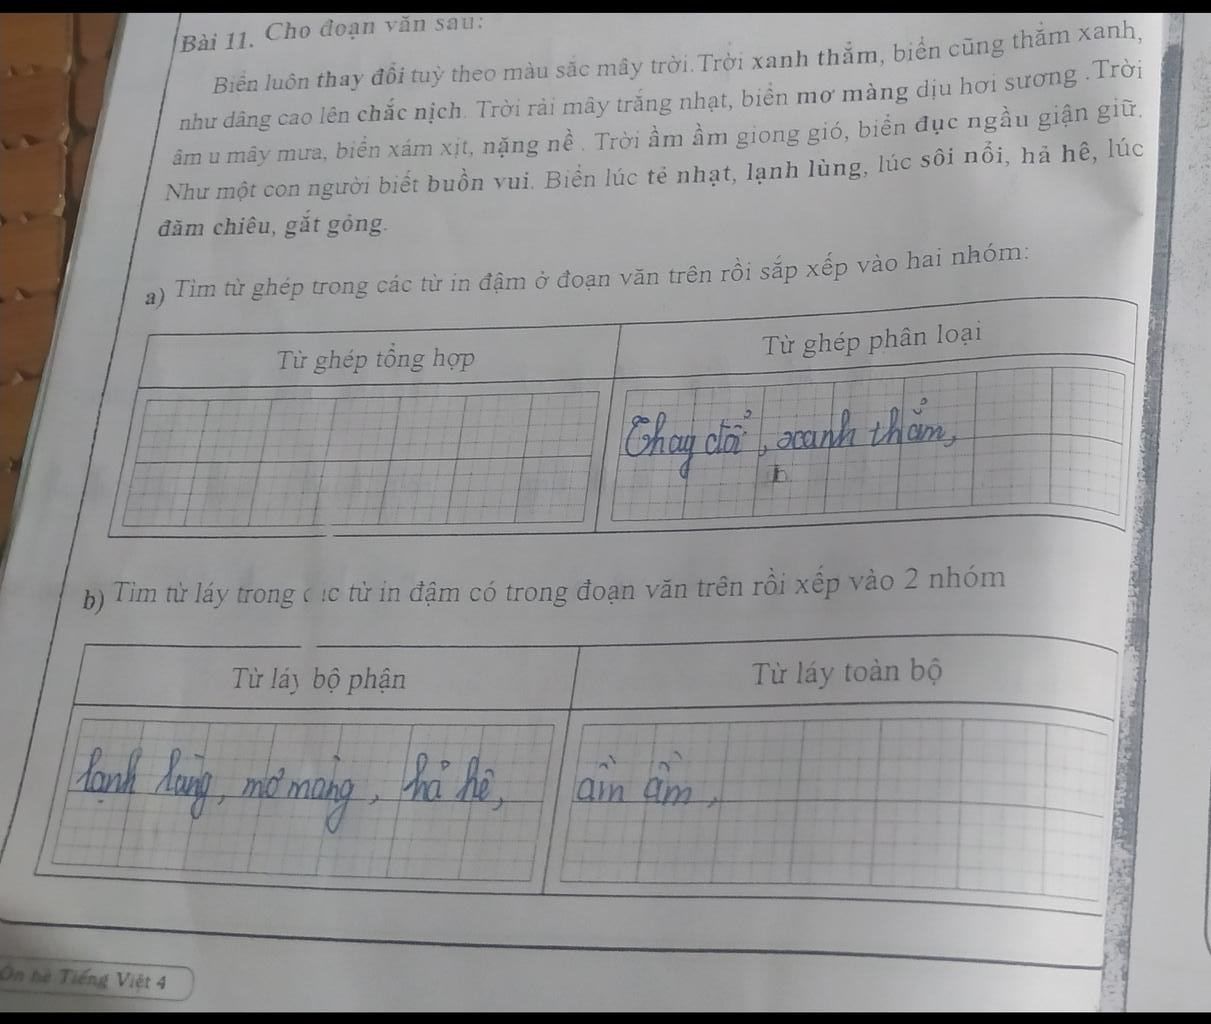 Bài 11. Cho đoạn văn sau:
Biển luôn thay đổi tuỳ theo màu sắc mây trời.Trời xanh thẳm, biển cũng thẳm xanh,
như dâng cao lên chắc nịch. Trời rải mây trắng nhạt, biển mơ màng dịu hơi sương .Trời
âm u mây mưa, biển xám xịt, nặng nề . Trời ầm ầm giong gió, biển đục ngầu giận giữ.
Như một con người biết buồn vui. Biển lúc tẻ nhạt, lạnh lùng, lúc sôi nổi, hả hê, lúc
đăm chiêu, gắt gỏng.
a) Tìm từ ghép trong các từ in đậm ở đoạn văn trên rồi sắp xếp vào hai nhóm:
Từ ghép tổng hợp
Từ ghép phân loại
Thay đổi, xanh thẳm,
b) Tìm từ láy trong các từ in đậm có trong đoạn văn trên rồi xếp vào 2 nhóm
Từ láy bộ phận
Từ láy toàn bộ
lạnh lùng, mơ màng, hả hê,
ầm ầm,
Ôn hè Tiếng Việt 4